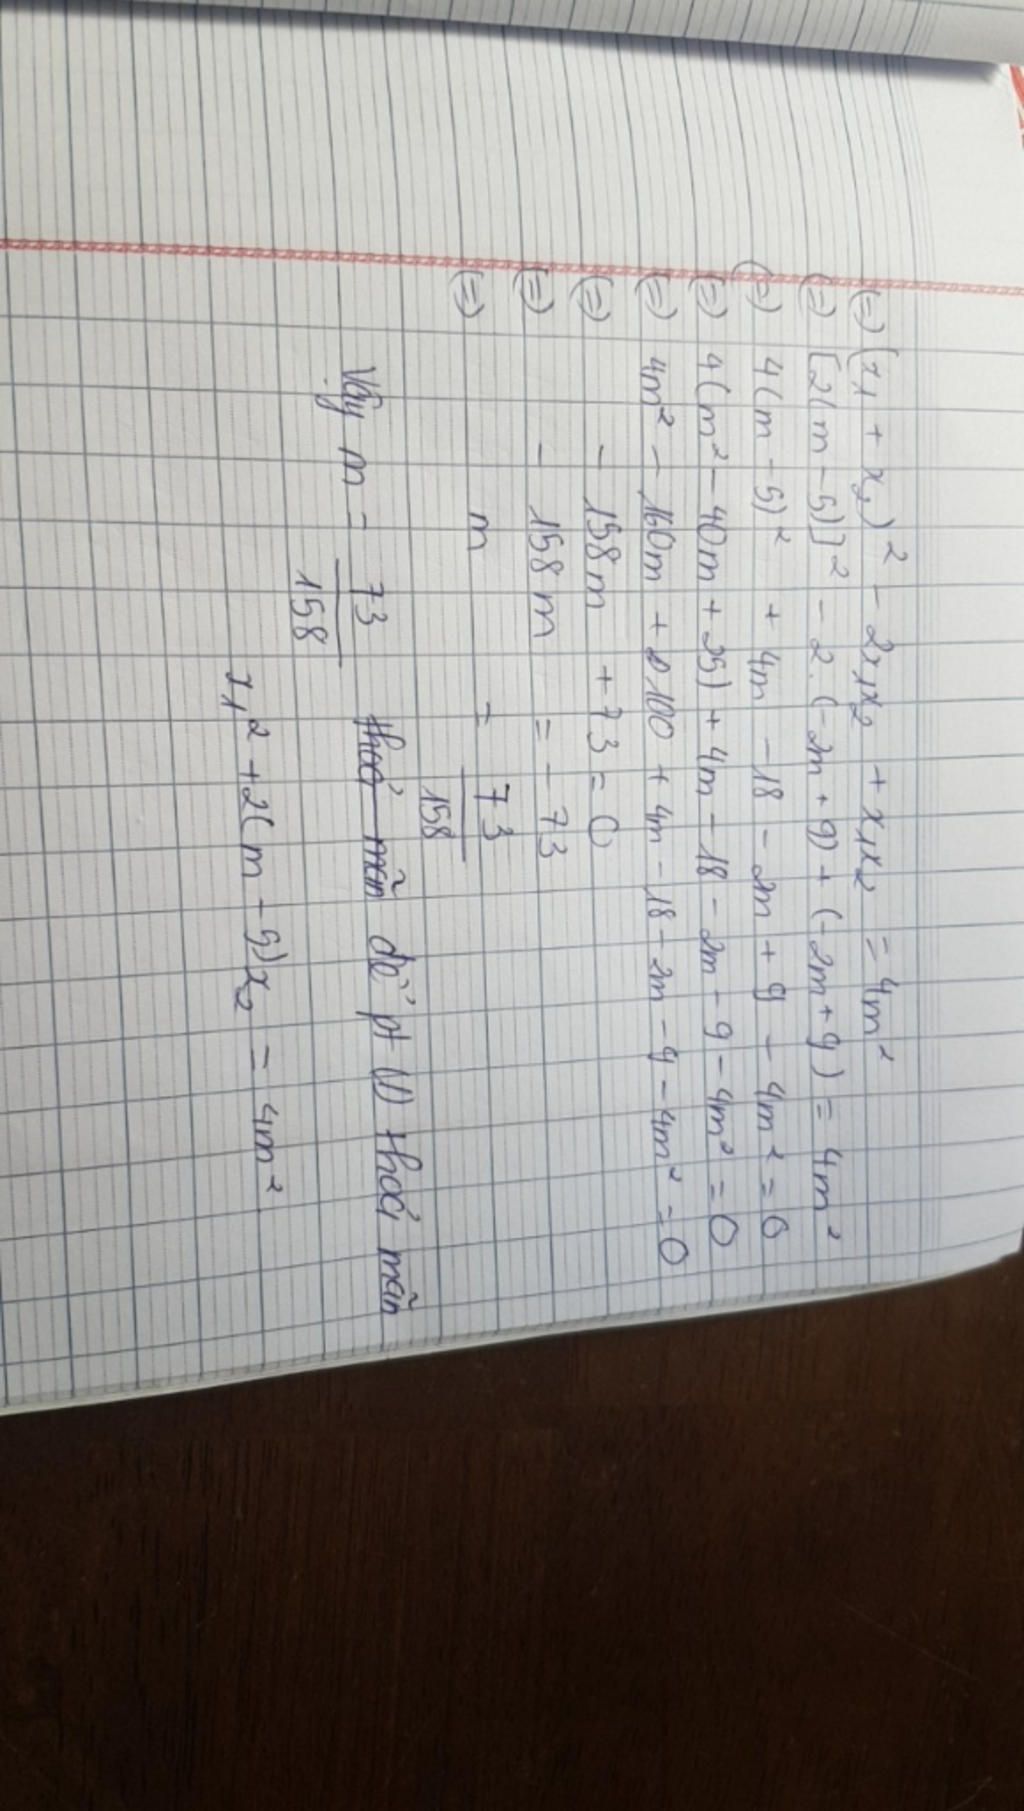 (=) (x₁ + x₂)² - 2x₁x₂ + x₁x₂ = 4m²
(=) [2(m - 5)]² - 2.(-2m + 9) + (-2m + 9) = 4m²
(=) 4(m - 5)² + 4m - 18 - 2m + 9 - 4m² = 0
(=) 4(m² - 40m + 25) + 4m - 18 - 2m - 9 - 4m² = 0
(=) 4m² - 160m + 100 + 4m - 18 - 2m - 9 - 4m² = 0
(=) - 158m + 73 = 0
(=) - 158m = - 73
(=) m = 73/158
Vậy m = 73/158 thoả mãn để pt (1) thoả mãn
x₁² + 2(m - 5)x₂ = 4m²